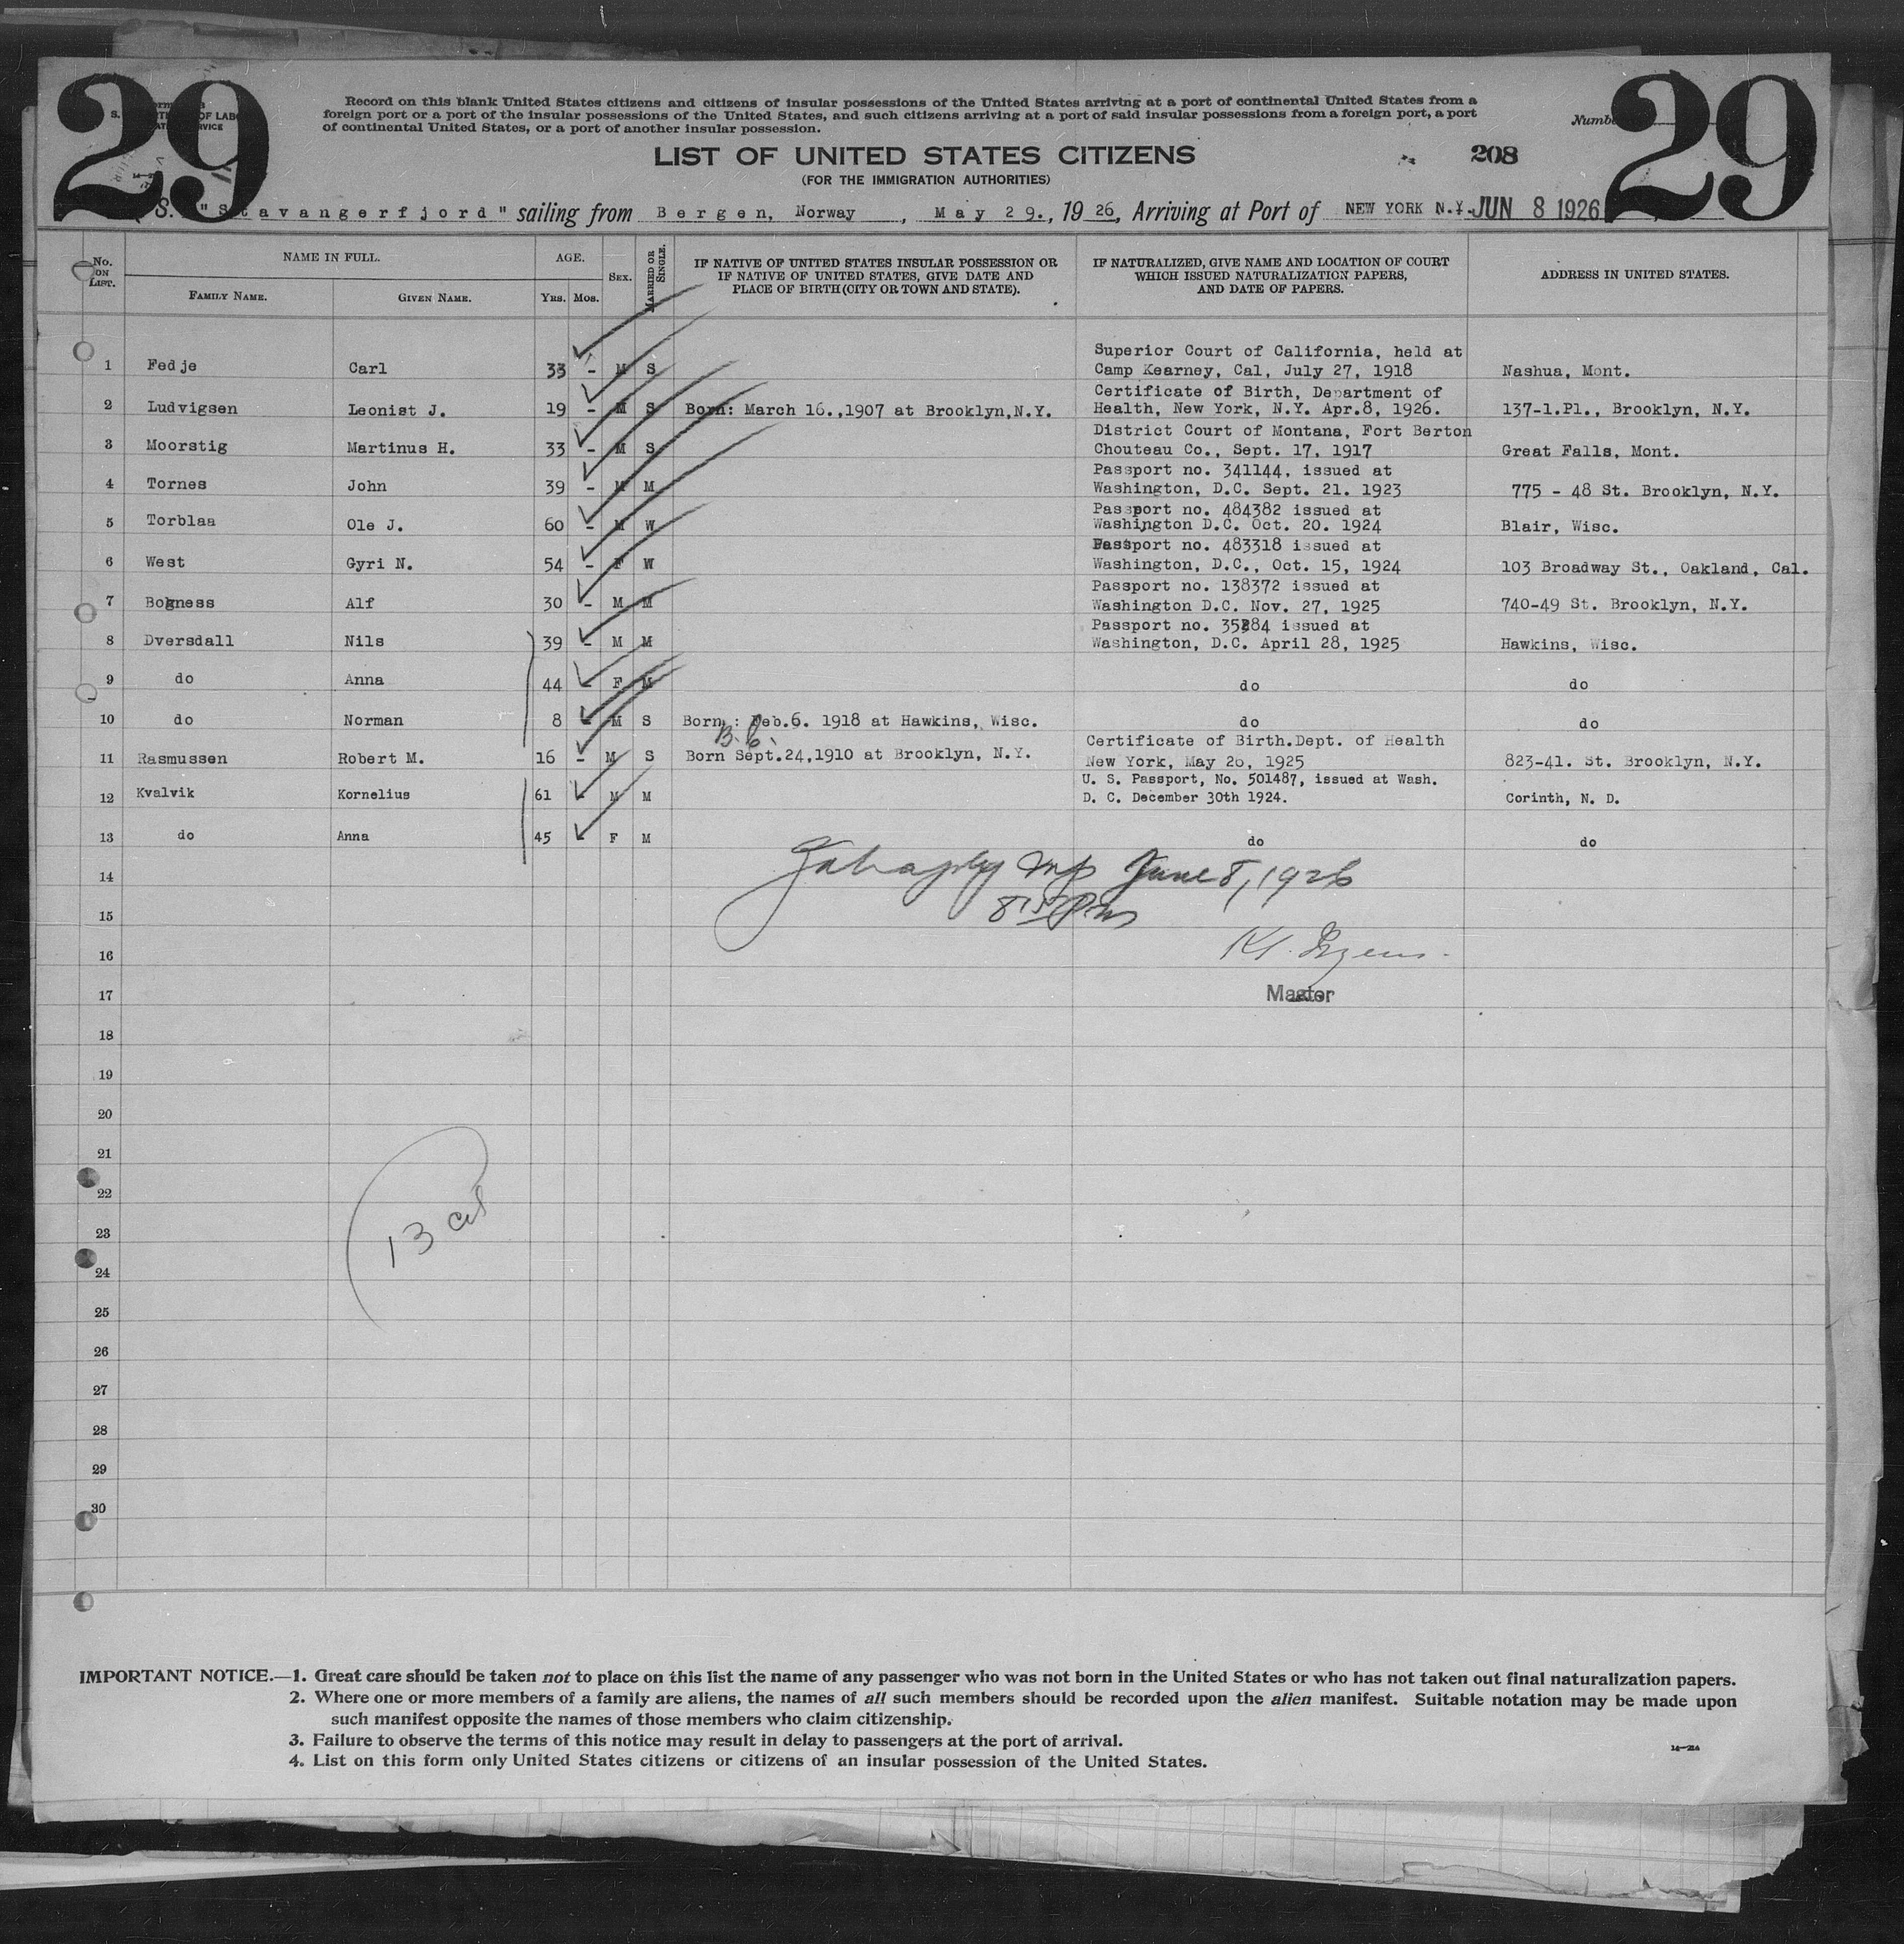 29
29
Record on this blank United States citizens and citizens of insular possessions of the United States arriving at a port of continental United States from a
foreign port or a port of the insular possessions of the United States, and such citizens arriving at a port of said insular possessions from a foreign port, a port
of continental United States, or a port of another insular possession.
LIST OF UNITED STATES CITIZENS
208
(FOR THE IMMIGRATION AUTHORITIES)
S. "Stavangerfjord" sailing from Bergen, Norway, May 29., 1926, Arriving at Port of NEW YORK N.Y. JUN 8 1926
No. on List.
NAME IN FULL.
Family Name.
Given Name.
AGE.
Yrs. Mos.
Sex.
Married or Single.
IF NATIVE OF UNITED STATES INSULAR POSSESSION OR
IF NATIVE OF UNITED STATES, GIVE DATE AND
PLACE OF BIRTH (CITY OR TOWN AND STATE).
IF NATURALIZED, GIVE NAME AND LOCATION OF COURT
WHICH ISSUED NATURALIZATION PAPERS,
AND DATE OF PAPERS.
ADDRESS IN UNITED STATES.
Superior Court of California, held at
1 Fedje Carl 33 - M S Camp Kearney, Cal, July 27, 1918 Nashua, Mont.
Certificate of Birth, Department of
2 Ludvigsen Leonist J. 19 - M S Born: March 16.,1907 at Brooklyn,N.Y. Health, New York, N.Y. Apr.8, 1926. 137-1.Pl., Brooklyn, N.Y.
District Court of Montana, Fort Berton
3 Moorstig Martinus H. 33 - M S Chouteau Co., Sept. 17, 1917 Great Falls, Mont.
Passport no. 341144, issued at
4 Tornes John 39 - M M Washington, D.C. Sept. 21. 1923 775 - 48 St. Brooklyn, N.Y.
Passport no. 484382 issued at
5 Torblaa Ole J. 60 - M W Washington D.C. Oct. 20. 1924 Blair, Wisc.
Passport no. 483318 issued at
6 West Gyri N. 54 - F W Washington, D.C., Oct. 15, 1924 103 Broadway St., Oakland, Cal.
Passport no. 138372 issued at
7 Bogness Alf 30 - M M Washington D.C. Nov. 27, 1925 740-49 St. Brooklyn, N.Y.
Passport no. issued at
8 Dversdall Nils 39 - M M Washington, D.C. April 28, 1925 Hawkins, Wisc.
9 do Anna 44 - F M do do
10 do Norman 8 - M S Born : Feb.6. 1918 at Hawkins, Wisc. do do
B.C.
Certificate of Birth.Dept. of Health
11 Rasmussen Robert M. 16 - M S Born Sept.24,1910 at Brooklyn, N.Y. New York, May 26, 1925 823-41. St. Brooklyn, N.Y.
U. S. Passport, No. 501487, issued at Wash.
12 Kvalvik Kornelius 61 - M M D. C. December 30th 1924. Corinth, N. D.
13 do Anna 45 - F M do do
14
June 8, 1926
15
16
17 Master
18
19
20
21
22
13
23
24
25
26
27
28
29
30
IMPORTANT NOTICE.—1. Great care should be taken not to place on this list the name of any passenger who was not born in the United States or who has not taken out final naturalization papers.
2. Where one or more members of a family are aliens, the names of all such members should be recorded upon the alien manifest. Suitable notation may be made upon
such manifest opposite the names of those members who claim citizenship.
3. Failure to observe the terms of this notice may result in delay to passengers at the port of arrival.
4. List on this form only United States citizens or citizens of an insular possession of the United States.